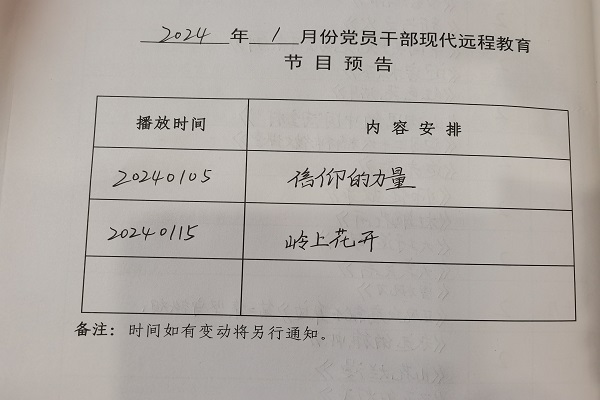 2024年1月份党员干部现代远程教育
节目预告
播放时间 内容安排
20240105 信仰的力量
20240115 岭上花开
备注：时间如有变动将另行通知。